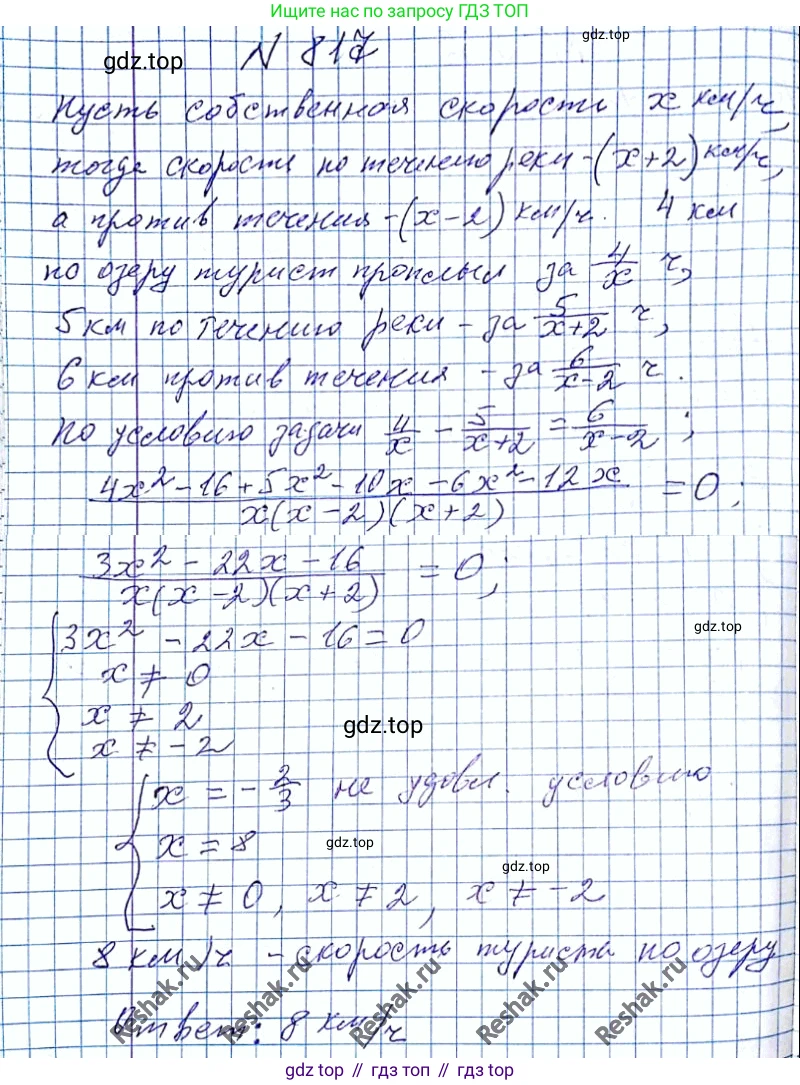 Ищите нас по запросу ГДЗ ТОП
gdz.top
N 817
gdz.top
Пусть собственная скорость x км/ч,
тогда скорость по течению реки -(x+2) км/ч,
а против течения -(x-2) км/ч. 4 км
по озеру турист проплыл за 4/x ч,
5 км по течению реки - за 5/(x+2) ч,
6 км против течения - за 6/(x-2) ч.
По условию задачи 4/x - 5/(x+2) = 6/(x-2) ;
(4x² - 16 + 5x² - 10x - 6x² - 12x)/(x(x-2)(x+2)) = 0;
(3x² - 22x - 16)/(x(x-2)(x+2)) = 0;
3x² - 22x - 16 = 0
gdz.top
x ≠ 0
x ≠ 2
gdz.top
x ≠ -2
x = -2/3 не удовл. условию
x = 8
gdz.top
gdz.top
x ≠ 0, x ≠ 2, x ≠ -2
8 км/ч - скорость туриста по озеру
Ответ: 8 км/ч
Reshak.ru
Reshak.ru
Reshak.ru
Reshak.ru
Reshak.ru
gdz.top // гдз.топ // gdz.top